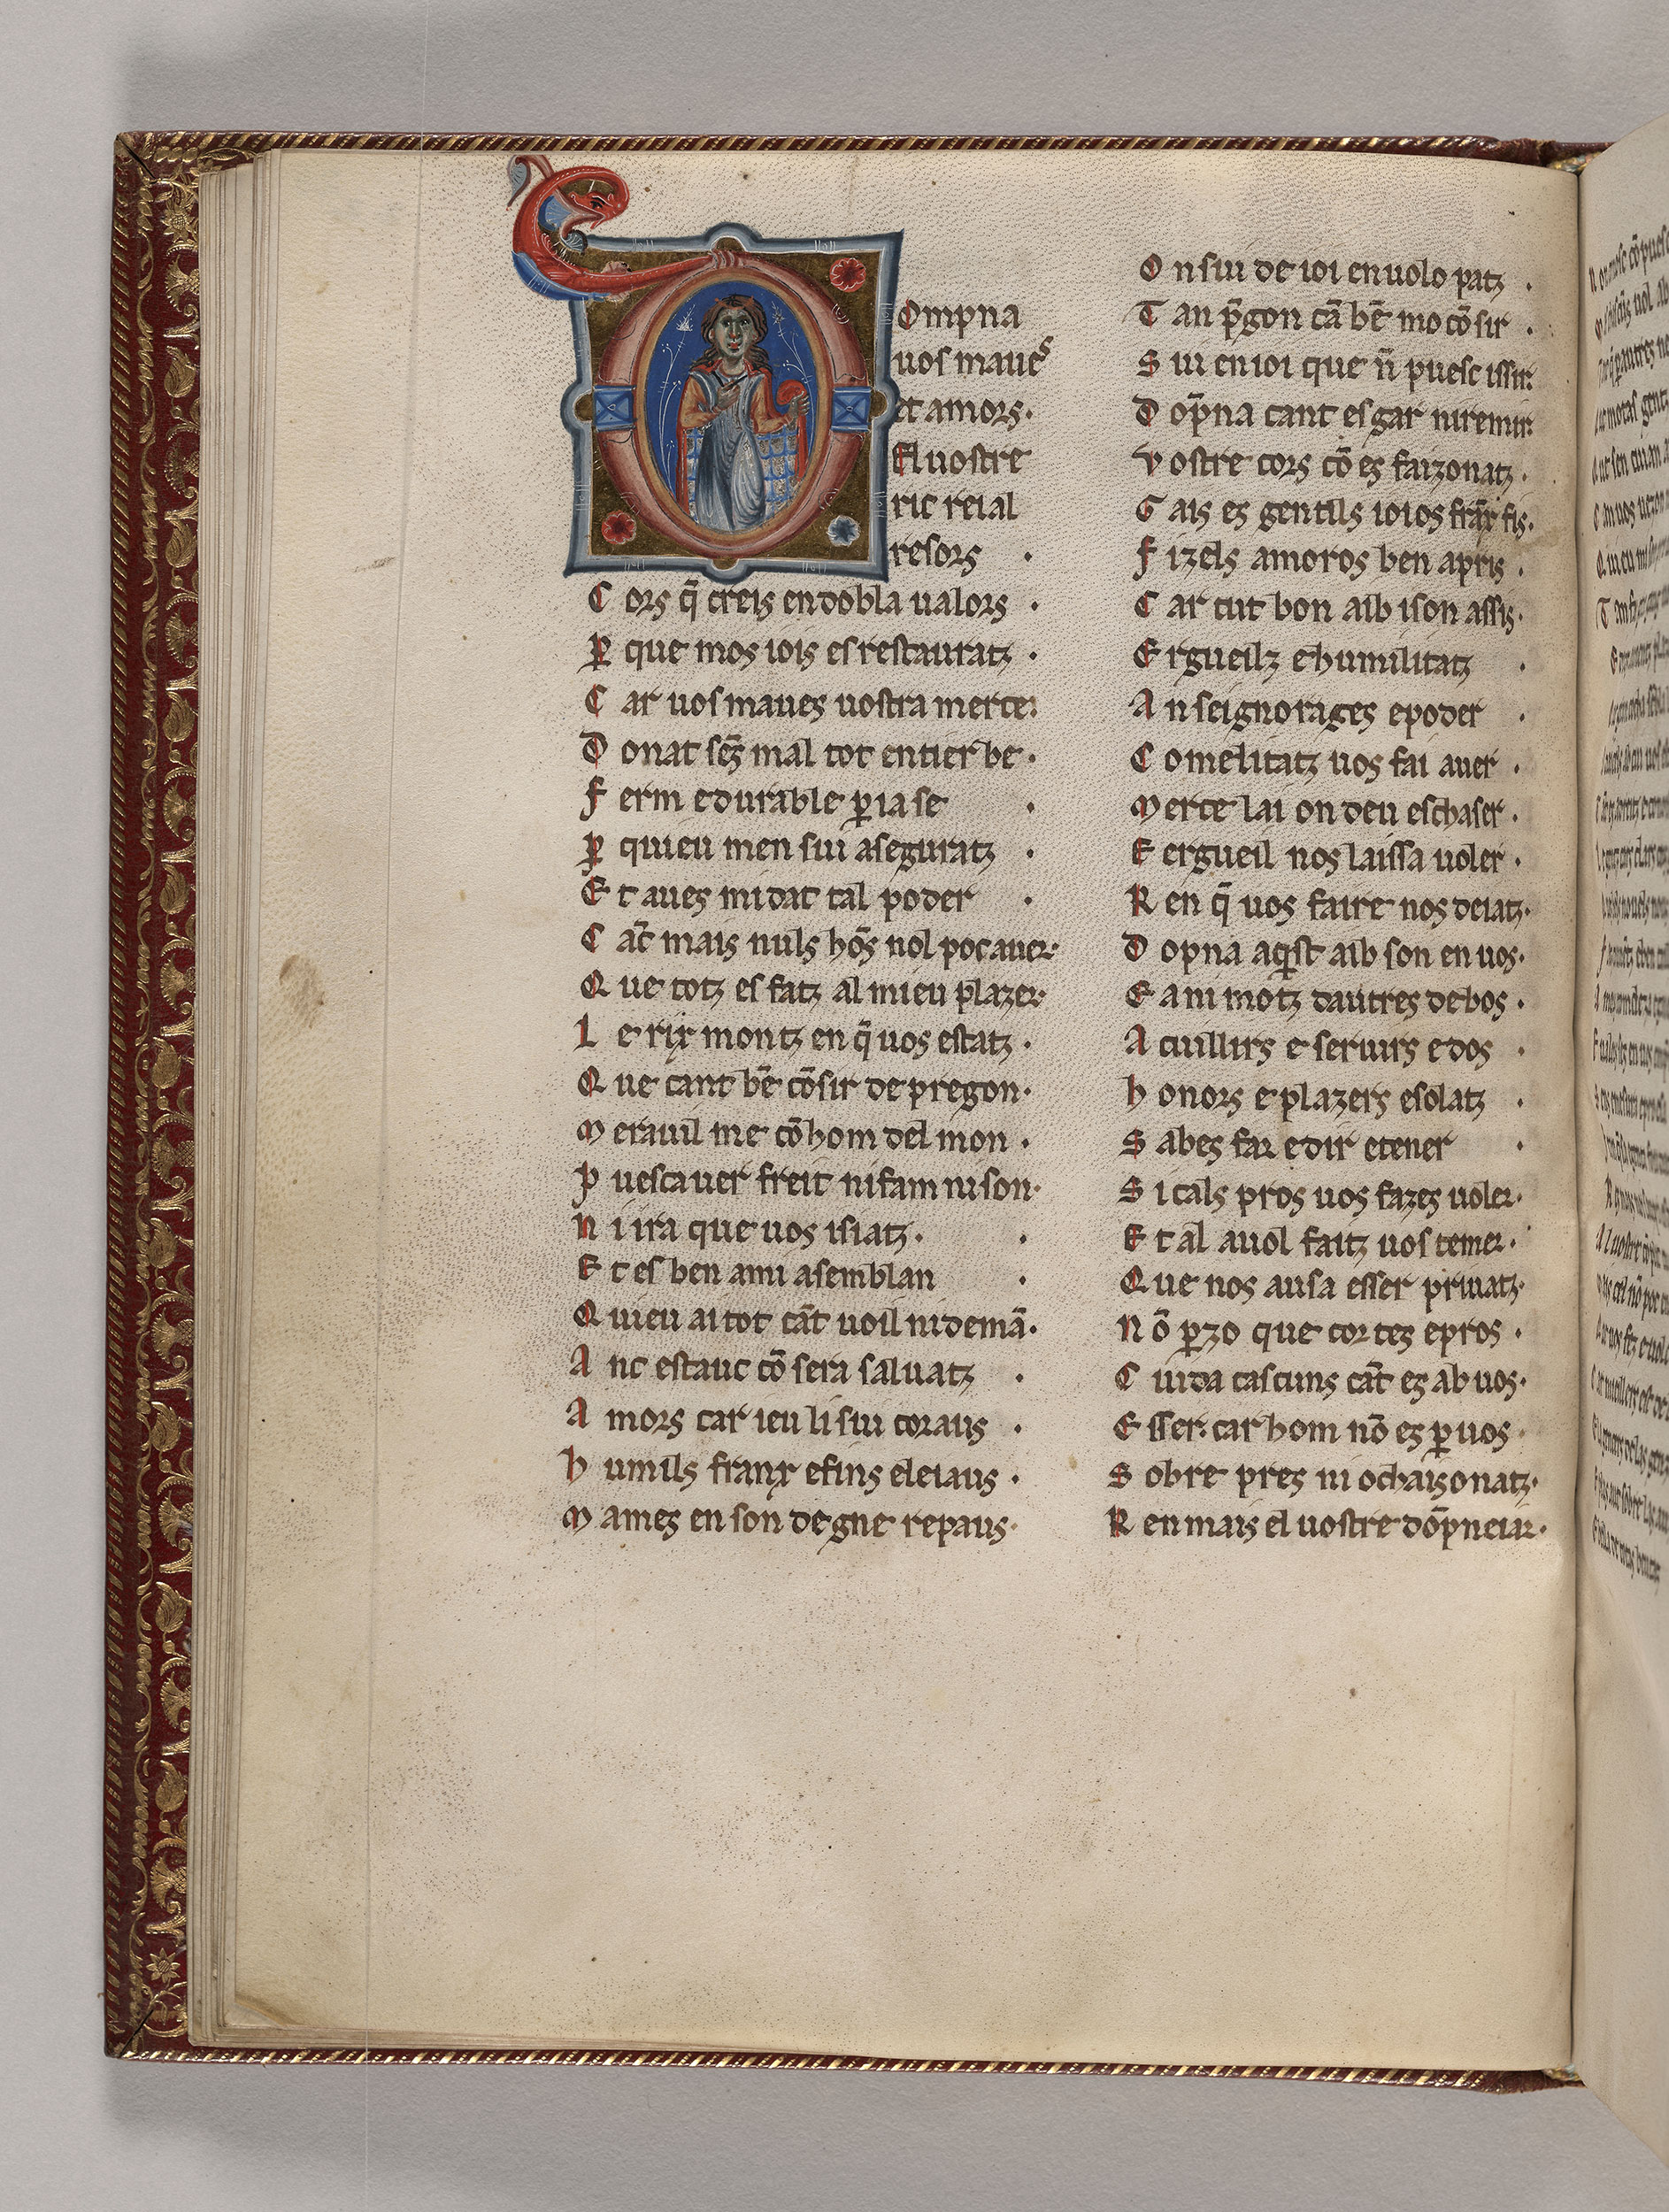 Ompna
uos maues
et amors.
El uostre
ric reial
resors .
C ors q̃ creis en dobla ualors .
ꝑ que mos iois es restauratz .
C ar uos maues uostra merce.
D onat ses mal tot entier be .
F erm e durable ꝑ ia se .
ꝑ quieu men sui aseguratz .
E t aues mi dat tal poder .
C ac̃ mais nuls hõs nol poc auer.
Q ue totz es fatz al mieu plazer.
L e rix montz en q̃ uos estatz .
Q ue cant bẽ cõsir de pregon.
M erauil me cõ hom del mon .
P uesc auer freit ni fam ni son.
N i ira que uos isiatz . .
E t es ben ami asemblan .
Q uieu ai tot cãt uoil ni demã.
A nc estauc cõ sera saluatz .
A mors car ieu li sui coraus .
H umils franx e fins e leiaus .
M ames en son degne repaus.
O n sui de ioi en uolo patz .
T an p̃gon cã bẽ mo cõsir .
S ui en ioi que ñ puesc issir.
D op̃na cant esgar ni remir.
V ostre cors cõ es faizonatz .
G ais es gentils ioios frãx fis.
F izels amoros ben apris .
C ar tut bon aib i son assis.
E rgueilz e humilitatz .
A n seignorages e poder .
C omelitatz uos fai auer .
M erce lai on deu eschaser .
E ergueil nos laissa uoler .
R en q̃ uos faire nos deiatz.
D opna aqist aib son en uos.
E ani motz dautres de bos .
A cuillirs e seruirs e dos .
H onors e plazers e solatz .
S abes far e dir e tener .
S i cals pros uos fazes uoler.
E t al auol faitz uos temer.
Q ue nos ausa esser priuatz.
N õ ꝑ zo que cortes e pros .
C uida cascuns cãt es ab uos.
E sser. car hom nõ es ꝑ uos .
S obre pres ni ochaisonatz.
R en mais el uostre dõpneiar.